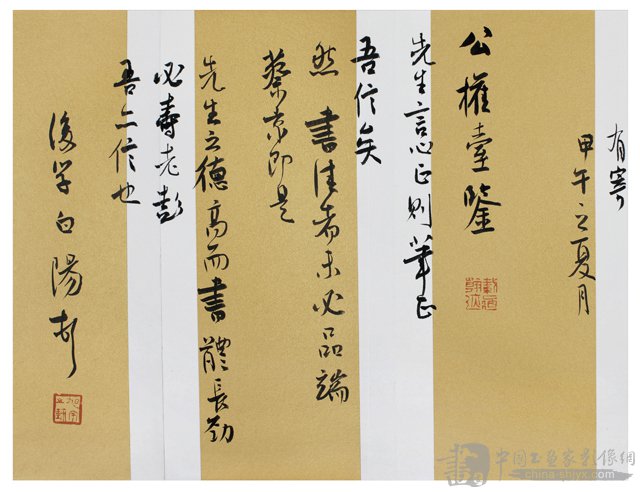 有寄
甲午之夏月
公權臺鑒
先生言心正则筆正
吾信矣
然書佳者未必品端
蔡京即是
先生之德高而書體長勁
必壽老彭
吾亦信也
後学白陽
中国书画家影像網
www.china-shjyx.com